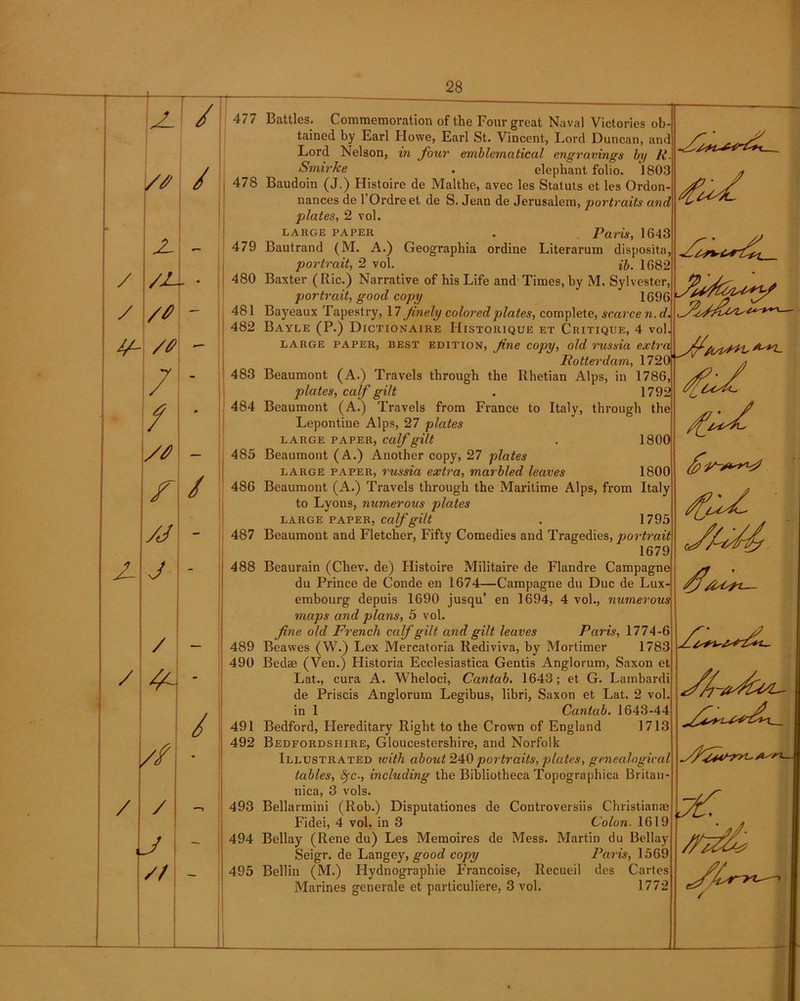 28
2 / 477 Battles. Commemoration of the Four great Naval Victories ob-
tained by Earl Howe, Earl St. Vincent, Lord Duncan, and
Lord Nelson, in four emblematical engravings by R.
Smirke . elephant folio. 1803
10 / 478 Baudoin (J.) Histoire de Malthe, avec les Statuts et les Ordon-
nances de l'Ordre et de S. Jean de Jerusalem, portraits and
plates, 2 vol.
LARGE PAPER . Paris, 1643
2 - 479 Bautrand (M. A.) Geographia ordine Literarum disposita,
portrait, 2 vol. ib. 1682
/ 12 - 480 Baxter (Ric.) Narrative of his Life and Times, by M. Sylvester,
portrait, good copy 1696
/ 10 - 481 Bayeaux Tapestry, 17 finely colored plates, complete, scarce n.d.
4 10 - 482 BAYLE (P.) DICTIONAIRE HISTORIQUE ET CRITIQUE, 4 vol.
LARGE PAPER, BEST EDITION, fine copy, old russia extra
Rotterdam, 1720
7 - 483 Beaumont (A.) Travels through the Rhetian Alps, in 1786,
plates, calf gilt . 1792
9 - 484 Beaumont (A.) Travels from France to Italy, through the
Lepontine Alps, 27 plates
LARGE PAPER, calf gilt . 1800
10 - 485 Beaumont (A.) Another copy, 27 plates
LARGE PAPER, russia extra, marbled leaves 1800
/ 486 Beaumont (A.) Travels through the Maritime Alps, from Italy
to Lyons, numerous plates
LARGE PAPER, calf gilt . 1795
13 - 487 Beaumont and Fletcher, Fifty Comedies and Tragedies, portrait
1679
2 3 - 488 Beaurain (Chev. de) Histoire Militaire de Flandre Campagne
du Prince de Conde en 1674—Campagne du Duc de Lux-
embourg depuis 1690 jusqu' en 1694, 4 vol., numerous
maps and plans, 5 vol.
fine old French calf gilt and gilt leaves Paris, 1774-6
/ - 489 Beawes (W.) Lex Mercatoria Rediviva, by Mortimer 1783
/ 4 - 490 Bedæ (Ven.) Historia Ecclesiastica Gentis Anglorum, Saxon et
Lat., cura A. Wheloci, Cantab. 1643; et G. Lambardi
de Priscis Anglorum Legibus, libri, Saxon et Lat. 2 vol.
in 1 Cantab. 1643-44
/ 491 Bedford, Hereditary Right to the Crown of England 1713
492 BEDFORDSHIRE, Gloucestershire, and Norfolk
ILLUSTRATED with about 240 portraits, plates, genealogical
tables, &c., including the Bibliotheca Topographica Britan-
nica, 3 vols.
/ / - 493 Bellarmini (Rob.) Disputationes de Controversiis Christianæ
Fidei, 4 vol. in 3 Colon. 1619
3 - 494 Bellay (Rene du) Les Memoires de Mess. Martin du Bellay
Seigr. de Langey, good copy Paris, 1569
11 - 495 Bellin (M.) Hydnographie Francoise, Recueil des Cartes
Marines generale et particuliere, 3 vol. 1772